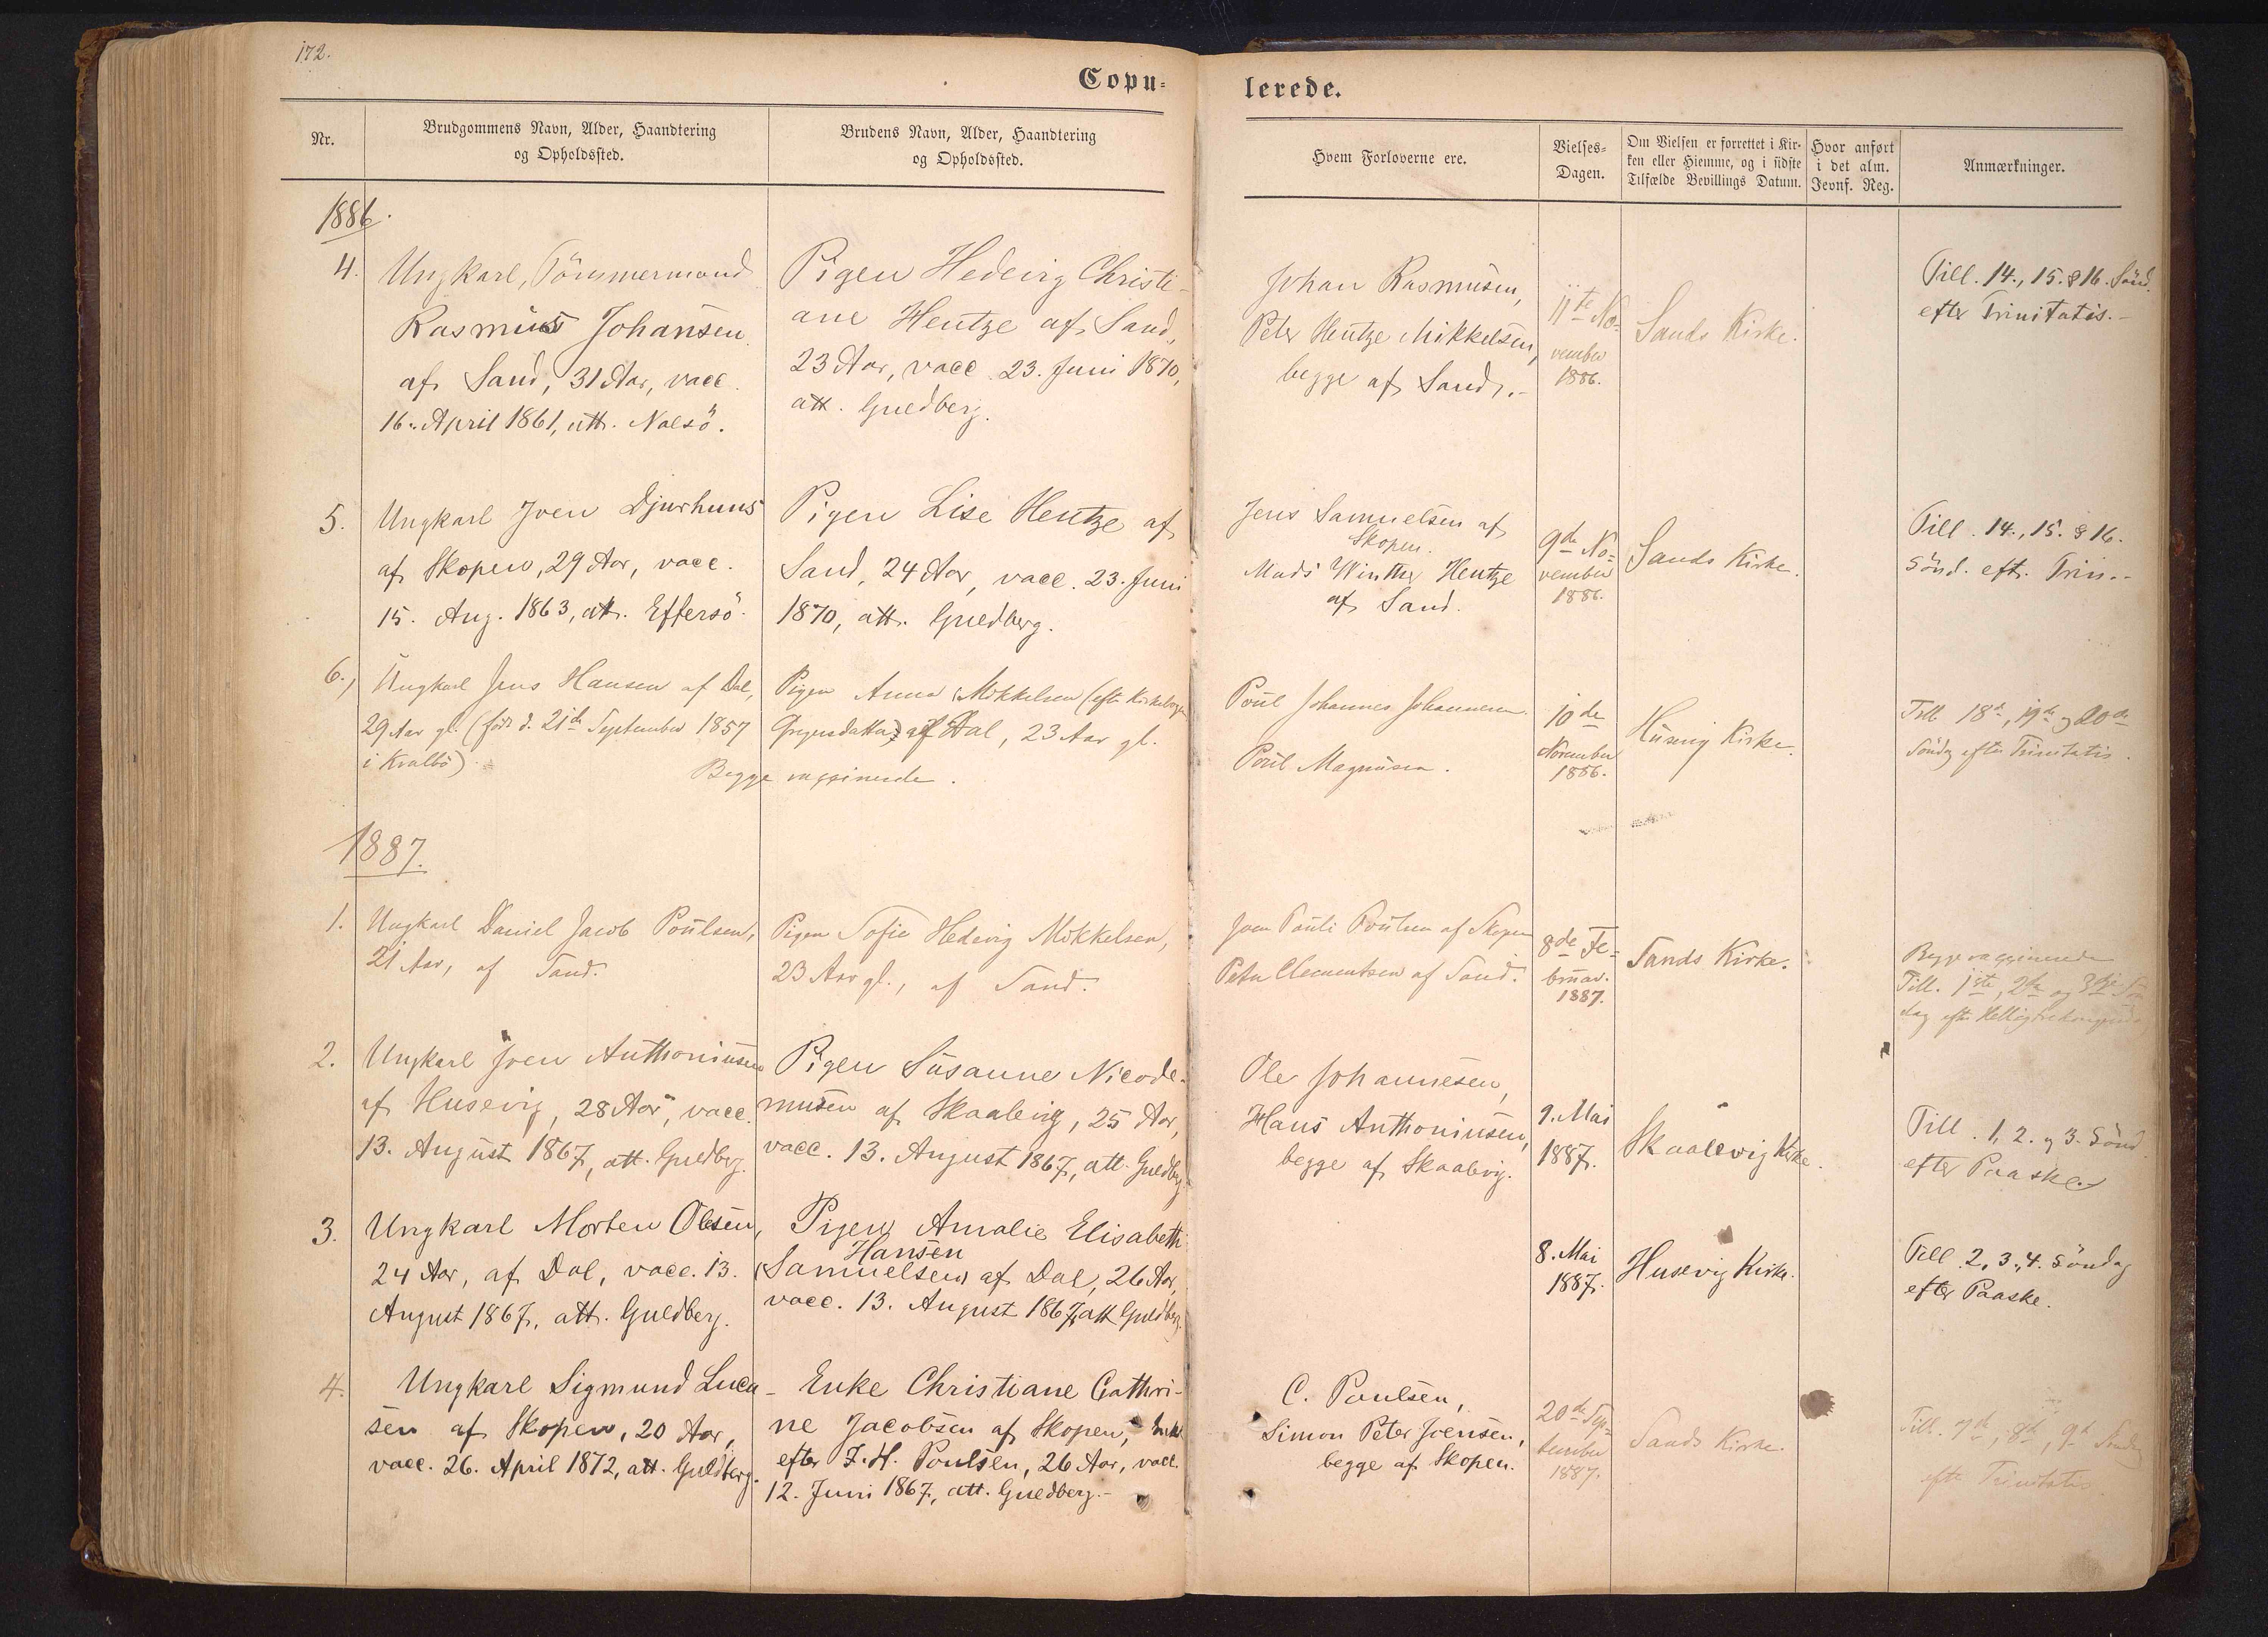 172.
Copu-
lerede.
Nr.
Brudgommens Navn, Alder, Haandtering
og Opholdssted.
Brudens Navn, Alder, Haandtering
og Opholdssted.
Hvem Forloverne ere.
Vielses-
Dagen.
Om Vielsen er forrettet i Kir-
ken eller Hjemme, og i sidste
Tilfælde Bevillings Datum.
Hvor anført
i det alm.
Jevnf. Reg.
Anmærkninger.
1886.
4.
Ungkarl, Tömmermand
Rasmus Johansen
af Sand, 31 Aar, vacc.
16. April 1861, att. Nolsö.
Pigen Hedevig Christi-
ane Hentze af Sand,
23 Aar, vacc. 23. Juni 1870,
att. Guldberg.
Johan Rasmusen,
Peter Hentze Mikkelsen,
begge af Sand.
11te No-
vember
1886.
Sands Kirke.
Till. 14., 15. & 16. Sönd.
efter Trinitatis.
5.
Ungkarl Joen Djurhuus
af Skopen, 29 Aar, vacc.
15. Aug. 1863, att. Effersö.
Pigen Lise Hentze af
Sand, 24 Aar, vacc. 23. Juni
1870, att. Guldberg.
Jens Samuelsen af
Skopen.
Mads Winther Hentze
af Sand.
9de No-
vember
1886.
Sands Kirke.
Till. 14., 15. & 16.
Sönd. eft. Trin.
6.,
Ungkarl Jens Hansen af Dal,
29 Aar gl. (föd d. 21de September 1857
i Kvalbö).
Pigen Anna Mikkelsen (efter Kirkebogen
af Dal, 23 Aar gl.
Begge vaccinerede.
Poul Johannes Johannesen.
Poul Magnusen.
10de
November
1886.
Husevig Kirke.
Till. 18de, 19de og 20de
Söndag efter Trinitatis.
1887.
1.
Ungkarl Daniel Jacob Poulsen,
21 Aar, af Sand.
Pigen Sofie Hedevig Mikkelsen,
23 Aar gl., af Sand.
Joen Pauli Poulsen af Skopen
Peter Clementsen af Sand.
8de Fe-
bruar.
1887.
Sands Kirke.
Begge vaccinerede
Till. 1ste, 2den og 3die Sön
dag efter
2.
Ungkarl Joen Anthoniusen
af Husevig, 28 Aar, vacc.
13. August 1867, att. Guldberg.
Pigen Susanne Nicode-
musen af Skaalevig, 25 Aar,
vacc. 13. August 1867, att. Guldberg.
Ole Johannesen,
Hans Anthoniusen,
begge af Skaalevig.
9. Mai
1887.
Skaalevig Kirke.
Till. 1, 2. og 3. Sönd.
efter Paaske.
3.
Ungkarl Morten Olesen,
24 Aar, af Dal, vacc. 13.
August 1867, att. Guldberg.
Pigen Amalie Elisabeth
Hansen
(Samuelsen) af Dal, 26 Aar,
vacc. 13. August 1867, att Guldberg.
8. Mai
1887.
Husevig Kirke.
Till. 2, 3., 4. Söndag
efter Paaske.
4.
Ungkarl Sigmund Luca-
sen af Skopen, 20 Aar,
vacc. 26. April 1872, att. Guldberg.
Enke Christiane Cathri-
ne Jacobsen af Skopen, Enke
efter J. H. Poulsen, 26 Aar, vacc.
12. Juni 1867, att. Guldberg.
C. Poulsen,
Simon Peter Joensen,
begge af Skopen.
20de Sep-
tember
1887.
Sands Kirke.
Till. 7de, 8de, 9de Söndag
efter Trinitatis.